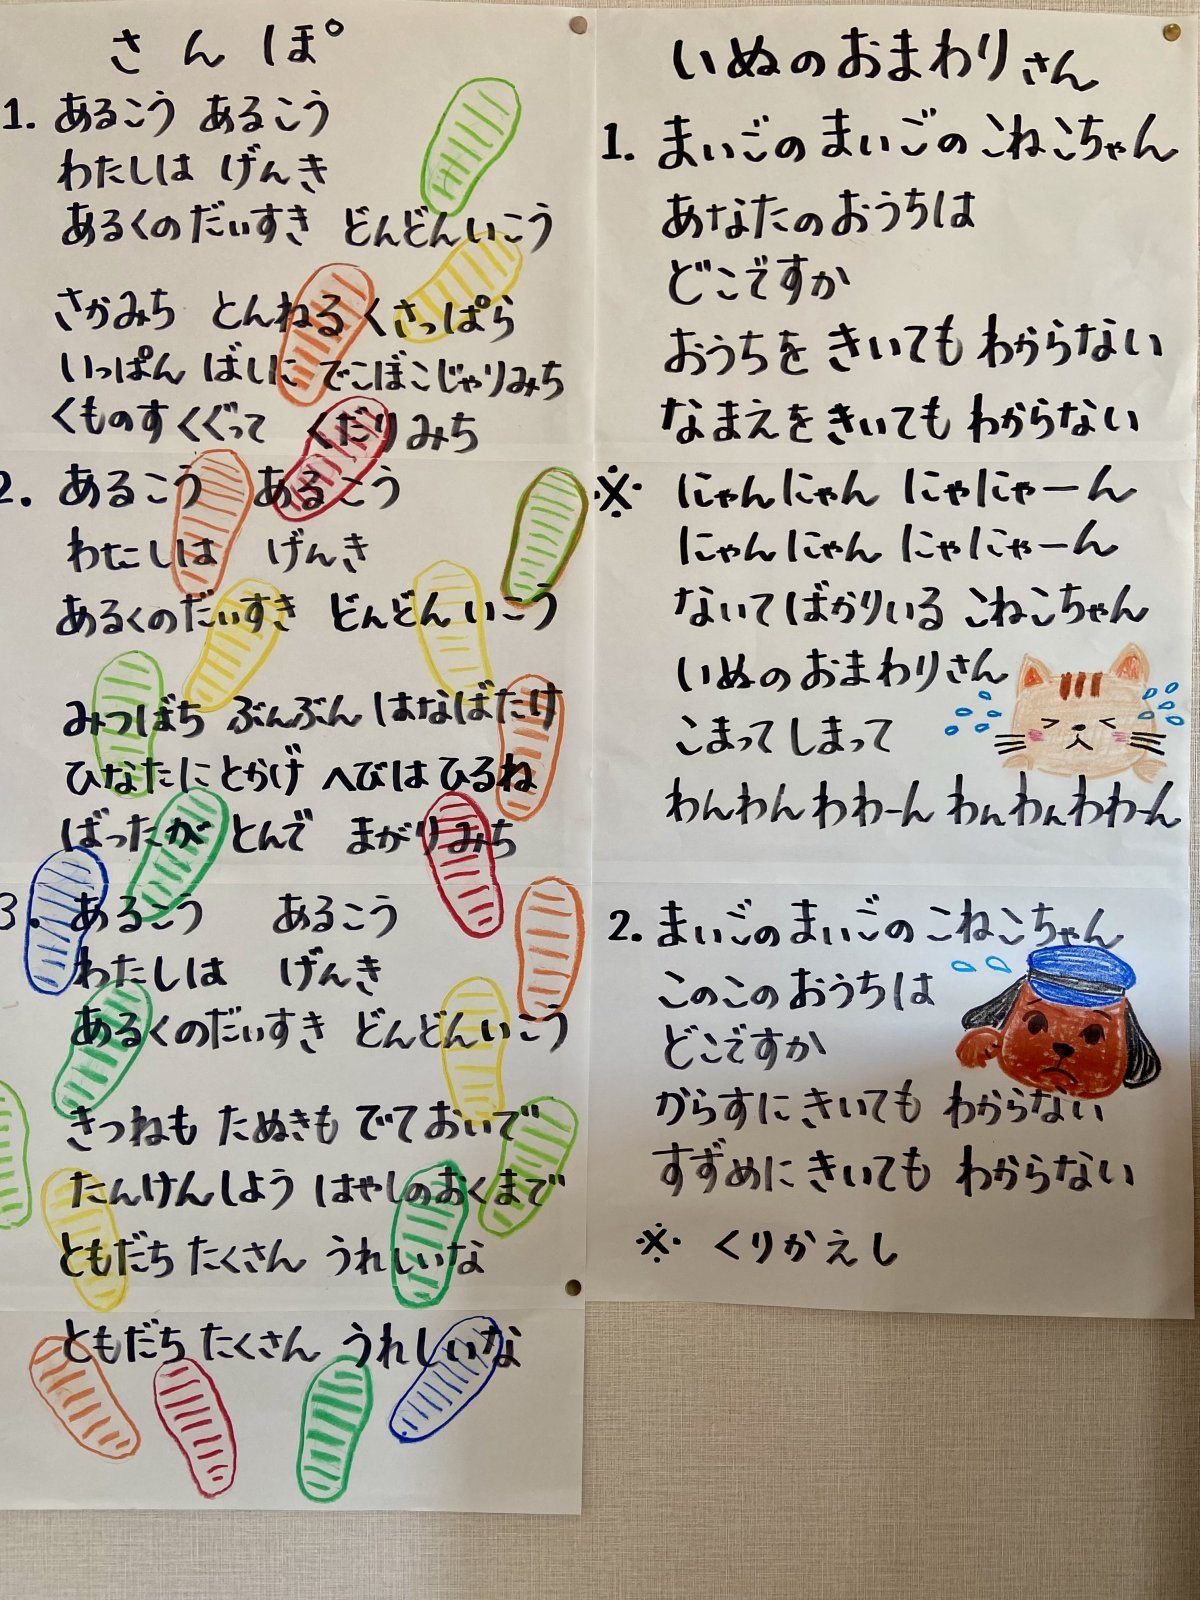 さんぽ
1. あるこう あるこう
わたしは げんき
あるくの だいすき どんどん いこう
さかみち とんねる くさっぱら
いっぽん ばしに でこぼこじゃりみち
くものす くぐって くだりみち
2. あるこう あるこう
わたしは げんき
あるくの だいすき どんどん いこう
みつばち ぶんぶん はなばたけ
ひなたに とかげ へびは ひるね
ばったが とんで まがりみち
3. あるこう あるこう
わたしは げんき
あるくの だいすき どんどん いこう
きつねも たぬきも でて おいで
たんけん しよう はやしの おくまで
ともだち たくさん うれしいな
ともだち たくさん うれしいな
いぬの おまわりさん
1. まいごの まいごの こねこちゃん
あなたの おうちは
どこですか
おうちを きいても わからない
なまえを きいても わからない
※ にゃんにゃん にゃにゃーん
にゃんにゃん にゃにゃーん
ないて ばかりいる こねこちゃん
いぬの おまわりさん
こまって しまって
わんわん わわーん わんわん わわーん
2. まいごの まいごの こねこちゃん
このこの おうちは
どこですか
からすに きいても わからない
すずめに きいても わからない
※ くりかえし